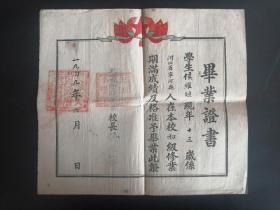 畢業證書
學生侯維 現年十三歲係
河北省寧河縣人在本校初級修業
期滿成績及格准予畢業此證
校長
一九 九年 月 日